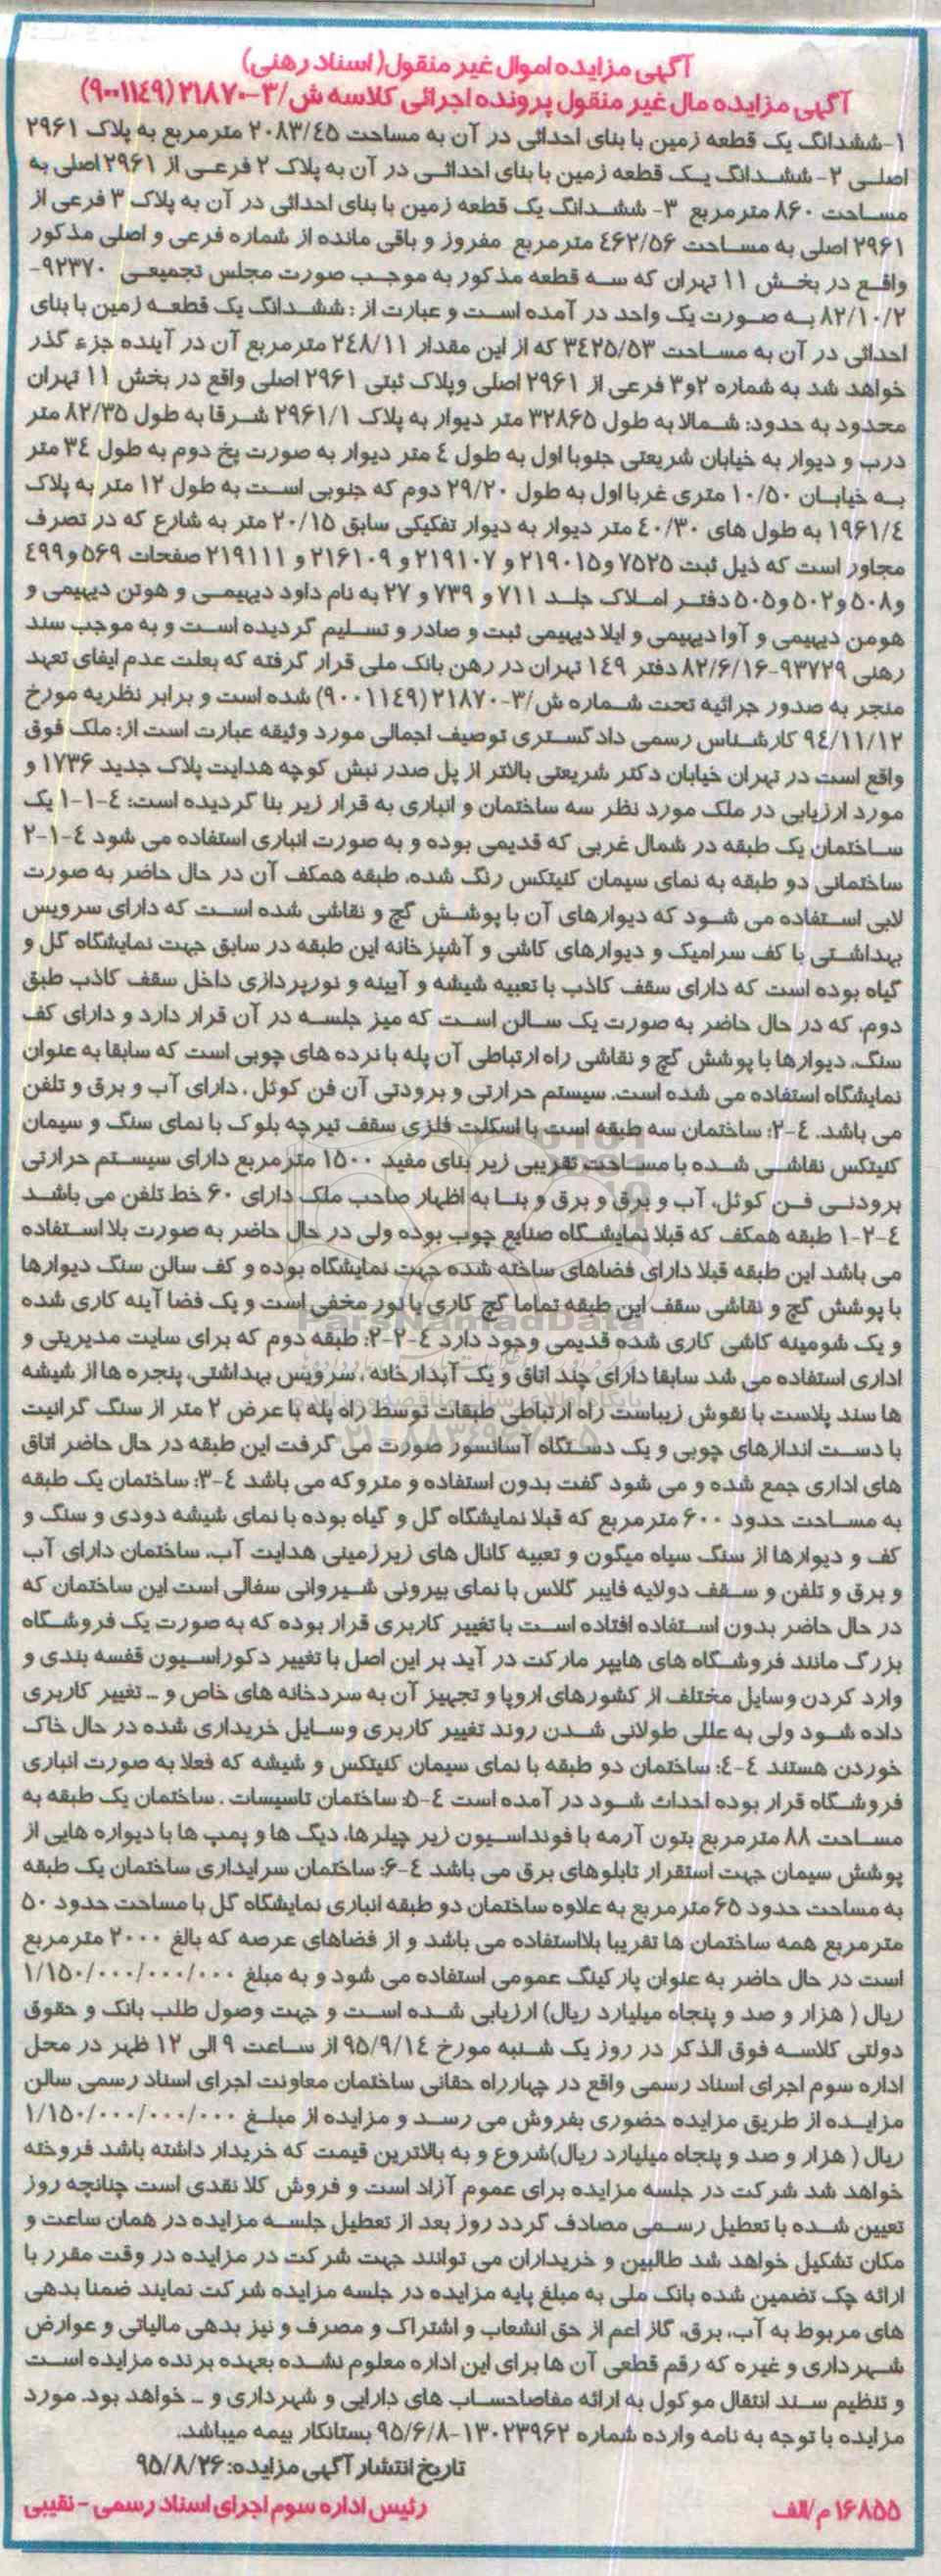 آگهی مزایده اموال غیر منقول( اسناد رهنی)
آگهی مزایده مال غیر منقول پرونده اجرائی کلاسه ش/۳-۲۱۸۷۰ (۹۰۰۱۱٤۹)
۱-ششدانگ یک قطعه زمین با بنای احداثی در آن به مساحت ۲۰۸۳/٤۵ مترمربع به پلاک ۲۹۶۱
اصلی ۲- ششدانگ یک قطعه زمین با بنای احداثی در آن به پلاک ۲ فرعی از ۲۹۶۱ اصلی به
مساحت ۸۶۰ مترمربع ۳- ششدانگ یک قطعه زمین با بنای احداثی در آن به پلاک ۳ فرعی از
۲۹۶۱ اصلی به مساحت ٤۶۲/۵۶ مترمربع مفروز و باقی مانده از شماره فرعی و اصلی مذکور
واقع در بخش ۱۱ تهران که سه قطعه مذکور به موجب صورت مجلس تجمیعی ۹۲۳۷۰-
۸۲/۱۰/۲ به صورت یک واحد در آمده است و عبارت از : ششدانگ یک قطعه زمین با بنای
احداثی در آن به مساحت ۳٤۲۵/۵۳ که از این مقدار ۲٤۸/۱۱ مترمربع آن در آینده جزء گذر
خواهد شد به شماره ۲و۳ فرعی از ۲۹۶۱ اصلی وپلاک ثبتی ۲۹۶۱ اصلی واقع در بخش ۱۱ تهران
محدود به حدود: شمالا به طول ۳۲۸۶۵ متر دیوار به پلاک ۲۹۶۱/۱ شرقا به طول ۸۲/۳۵ متر
درب و دیوار به خیابان شریعتی جنوبا اول به طول ٤ متر دیوار به صورت پخ دوم به طول ۳٤ متر
به خیابان ۱۰/۵۰ متری غربا اول به طول ۲۹/۲۰ دوم که جنوبی است به طول ۱۲ متر به پلاک
۱۹۶۱/٤ به طول های ٤۰/۳۰ متر دیوار به دیوار تفکیکی سابق ۲۰/۱۵ متر به شارع که در تصرف
مجاور است که ذیل ثبت ۷۵۲۵ و۲۱۹۰۱۵ و ۲۱۹۱۰۷ و ۲۱۶۱۰۹ و ۲۱۹۱۱۱ صفحات ۵۶۹ و٤۹۹
و۵۰۸ و۵۰۲ و۵۰۵ دفتر املاک جلد ۷۱۱ و ۷۳۹ و ۲۷ به نام داود دیهیمی و هوتن دیهیمی و
هومن دیهیمی و آوا دیهیمی و ایلا دیهیمی ثبت و صادر و تسلیم گردیده است و به موجب سند
رهنی ۹۳۷۲۹-۸۲/۶/۱۶ دفتر ۱٤۹ تهران در رهن بانک ملی قرار گرفته که بعلت عدم ایفای تعهد
منجر به صدور جرائیه تحت شماره ش/۳-۲۱۸۷۰ (۹۰۰۱۱٤۹) شده است و برابر نظریه مورخ
۹٤/۱۱/۱۲ کارشناس رسمی دادگستری توصیف اجمالی مورد وثیقه عبارت است از: ملک فوق
واقع است در تهران خیابان دکتر شریعتی بالاتر از پل صدر نبش کوچه هدایت پلاک جدید ۱۷۳۶ و
مورد ارزیابی در ملک مورد نظر سه ساختمان و انباری به قرار زیر بنا گردیده است: ٤-۱-۱ یک
ساختمان یک طبقه در شمال غربی که قدیمی بوده و به صورت انباری استفاده می شود ٤-۱-۲
ساختمانی دو طبقه به نمای سیمان کنیتکس رنگ شده، طبقه همکف آن در حال حاضر به صورت
لابی استفاده می شود که دیوارهای آن با پوشش گچ و نقاشی شده است که دارای سرویس
بهداشتی با کف سرامیک و دیوارهای کاشی و آشپزخانه این طبقه در سابق جهت نمایشگاه گل و
گیاه بوده است که دارای سقف کاذب با تعبیه شیشه و آیینه و نورپردازی داخل سقف کاذب طبق
دوم، که در حال حاضر به صورت یک سالن است که میز جلسه در آن قرار دارد و دارای کف
سنگ، دیوارها با پوشش گچ و نقاشی راه ارتباطی آن پله با نرده های چوبی است که سابقا به عنوان
نمایشگاه استفاده می شده است. سیستم حرارتی و برودتی آن فن کوئل . دارای آب و برق و تلفن
می باشد. ٤-۲: ساختمان سه طبقه است با اسکلت فلزی سقف تیرچه بلوک با نمای سنگ و سیمان
کنیتکس نقاشی شده با مساحت تقریبی زیر بنای مفید ۱۵۰۰ مترمربع دارای سیستم حرارتی
برودتی فن کوئل، آب و برق و برق و بنا به اظهار صاحب ملک دارای ۶۰ خط تلفن می باشد
٤-۲-۱ طبقه همکف که قبلا نمایشگاه صنایع چوب بوده ولی در حال حاضر به صورت بلا استفاده
می باشد این طبقه قبلا دارای فضاهای ساخته شده جهت نمایشگاه بوده و کف سالن سنگ دیوارها
با پوشش گچ و نقاشی سقف این طبقه تماما گچ کاری با نور مخفی است و یک فضا آینه کاری شده
و یک شومینه کاشی کاری شده قدیمی وجود دارد ٤-۲-۲: طبقه دوم که برای سایت مدیریتی و
اداری استفاده می شد سابقا دارای چند اتاق و یک آبدارخانه ، سرویس بهداشتی، پنجره ها از شیشه
ها سند پلاست با نقوش زیباست راه ارتباطی طبقات توسط راه پله با عرض ۲ متر از سنگ گرانیت
با دست اندازهای چوبی و یک دستگاه آسانسور صورت می گرفت این طبقه در حال حاضر اتاق
های اداری جمع شده و می شود گفت بدون استفاده و متروکه می باشد ٤-۳: ساختمان یک طبقه
به مساحت حدود ۶۰۰ مترمربع که قبلا نمایشگاه گل و گیاه بوده با نمای شیشه دودی و سنگ و
کف و دیوارها از سنگ سیاه میگون و تعبیه کانال های زیرزمینی هدایت آب، ساختمان دارای آب
و برق و تلفن و سقف دولایه فایبر گلاس با نمای بیرونی شیروانی سفالی است این ساختمان که
در حال حاضر بدون استفاده افتاده است با تغییر کاربری قرار بوده که به صورت یک فروشگاه
بزرگ مانند فروشگاه های هایپر مارکت در آید بر این اصل با تغییر دکوراسیون قفسه بندی و
وارد کردن وسایل مختلف از کشورهای اروپا و تجهیز آن به سردخانه های خاص و ... تغییر کاربری
داده شود ولی به عللی طولانی شدن روند تغییر کاربری وسایل خریداری شده در حال خاک
خوردن هستند ٤-٤: ساختمان دو طبقه با نمای سیمان کنیتکس و شیشه که فعلا به صورت انباری
فروشگاه قرار بوده احداث شود در آمده است ٤-۵: ساختمان تاسیسات . ساختمان یک طبقه به
مساحت ۸۸ مترمربع بتون آرمه با فونداسیون زیر چیلرها، دیگ ها و پمپ ها با دیواره هایی از
پوشش سیمان جهت استقرار تابلوهای برق می باشد ٤-۶: ساختمان سرایداری ساختمان یک طبقه
به مساحت حدود ۶۵ مترمربع به علاوه ساختمان دو طبقه انباری نمایشگاه گل با مساحت حدود ۵۰
مترمربع همه ساختمان ها تقریبا بلااستفاده می باشد و از فضاهای عرصه که بالغ ۲۰۰۰ مترمربع
است در حال حاضر به عنوان پارکینگ عمومی استفاده می شود و به مبلغ ۱/۱۵۰/۰۰۰/۰۰۰/۰۰۰
ریال ( هزار و صد و پنجاه میلیارد ریال) ارزیابی شده است و جهت وصول طلب بانک و حقوق
دولتی کلاسه فوق الذکر در روز یک شنبه مورخ ۹۵/۹/۱٤ از ساعت ۹ الی ۱۲ ظهر در محل
اداره سوم اجرای اسناد رسمی واقع در چهارراه حقانی ساختمان معاونت اجرای اسناد رسمی سالن
مزایده از طریق مزایده حضوری بفروش می رسد و مزایده از مبلغ ۱/۱۵۰/۰۰۰/۰۰۰/۰۰۰
ریال ( هزار و صد و پنجاه میلیارد ریال)شروع و به بالاترین قیمت که خریدار داشته باشد فروخته
خواهد شد شرکت در جلسه مزایده برای عموم آزاد است و فروش کلا نقدی است چنانچه روز
تعیین شده با تعطیل رسمی مصادف گردد روز بعد از تعطیل جلسه مزایده در همان ساعت و
مکان تشکیل خواهد شد طالبین و خریداران می توانند جهت شرکت در مزایده در وقت مقرر با
ارائه چک تضمین شده بانک ملی به مبلغ پایه مزایده در جلسه مزایده شرکت نمایند ضمنا بدهی
های مربوط به آب، برق، گاز اعم از حق انشعاب و اشتراک و مصرف و نیز بدهی مالیاتی و عوارض
شهرداری و غیره که رقم قطعی آن ها برای این اداره معلوم نشده بعهده برنده مزایده است
و تنظیم سند انتقال موکول به ارائه مفاصاحساب های دارایی و شهرداری و ... خواهد بود. مورد
مزایده با توجه به نامه وارده شماره ۱۳۰۲۳۹۶۲-۹۵/۶/۸ بستانکار بیمه میباشد.
تاریخ انتشار آگهی مزایده: ۹۵/۸/۲۶
رئیس اداره سوم اجرای اسناد رسمی - نقیبی
۱۶۸۵۵ م/الف
ParsNamadData